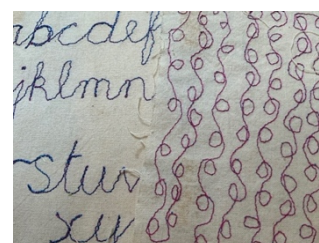 abcdef
jklmn
stuv
xy